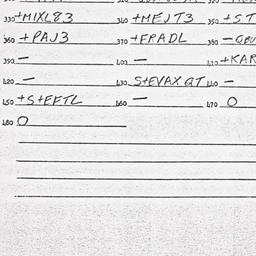 330 +MIXL83 340 +MEJT3 350 +ST
360 +PAJ3 370 +FRADL 380
390 — 400 — 410 +KAR
420 — 430 S+EVAX QT 440 —
450 +S+EFTL 460 — 470 0
480 0